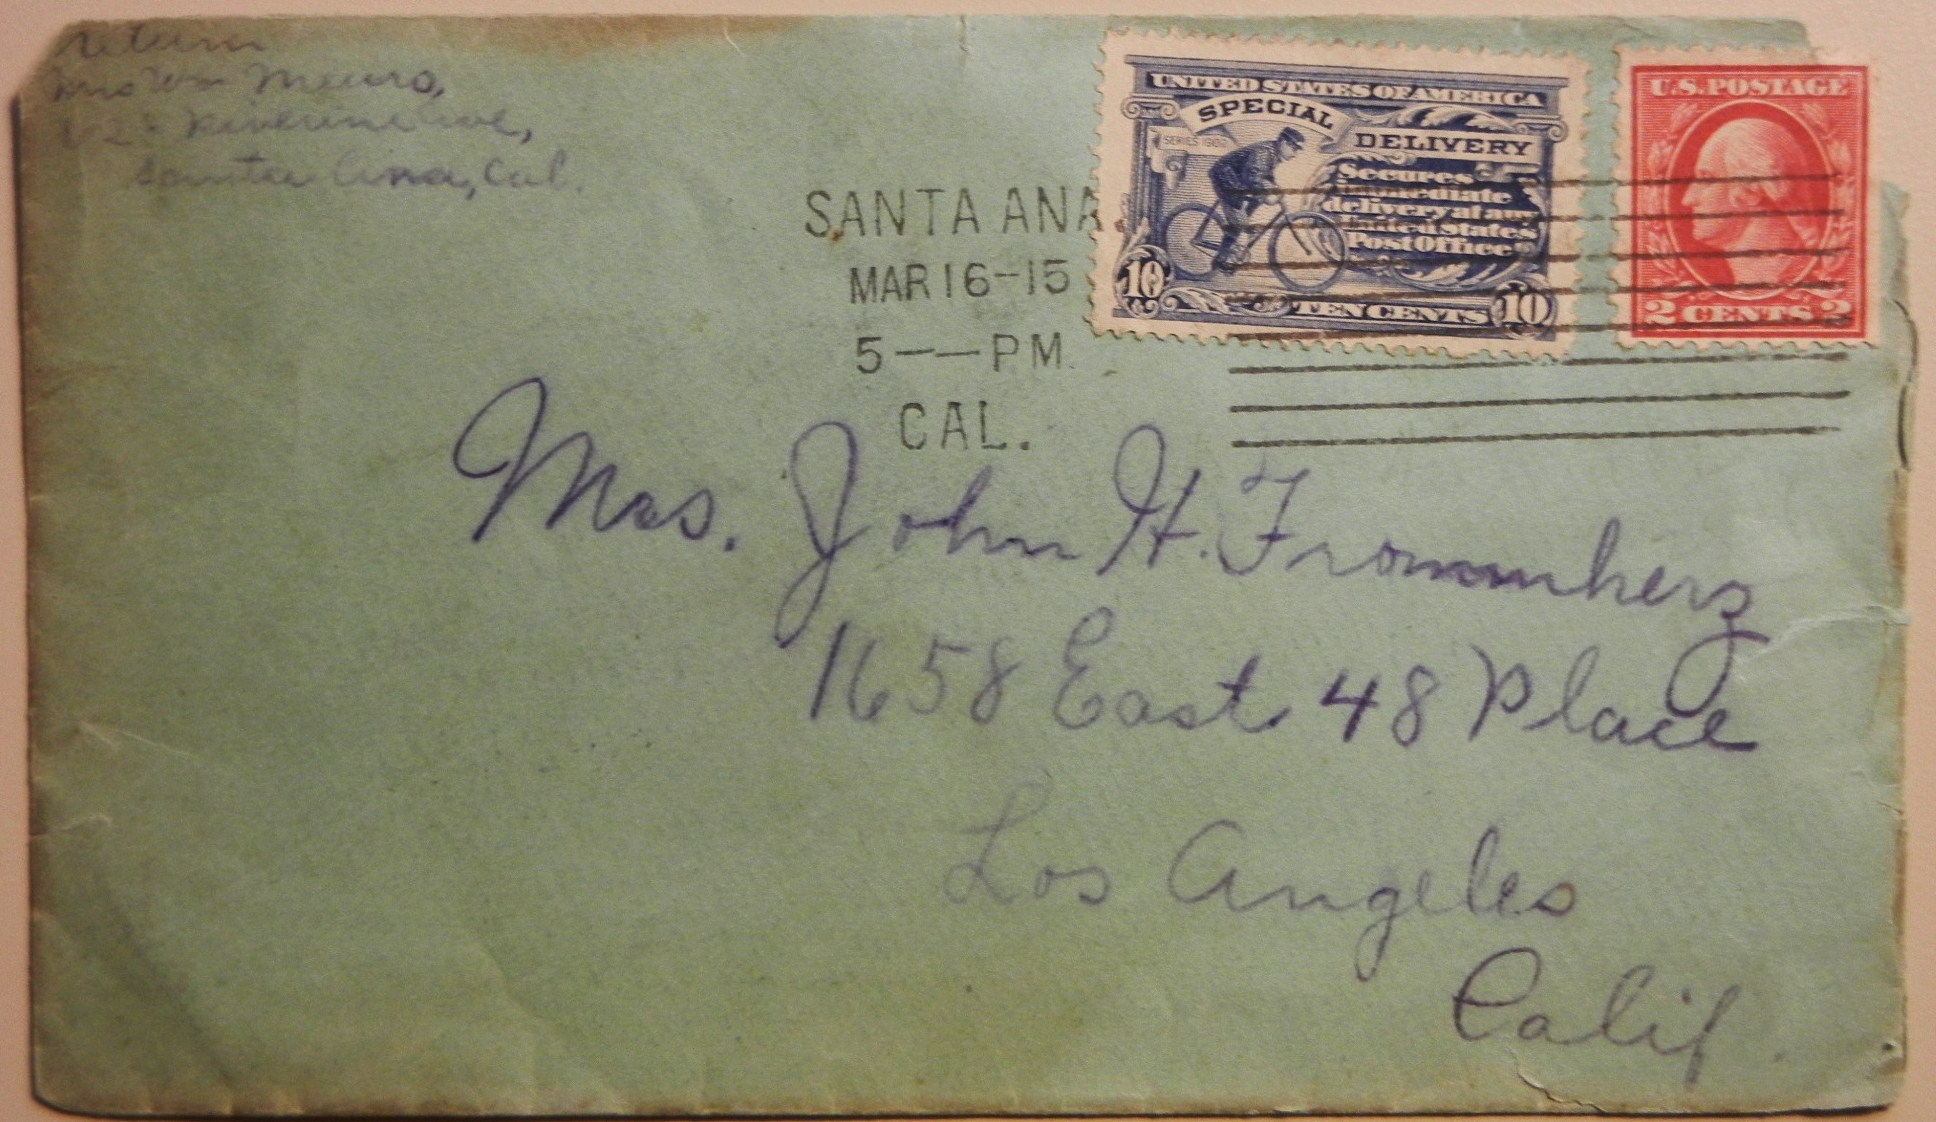 return
Mrs Wm
Ave,
Santa Ana, Cal.
SANTA ANA
MAR 16-15
5 — — PM.
CAL.
UNITED STATES OF AMERICA
SPECIAL
DELIVERY
SERIES 1902
Secures
immediate
delivery at any
United States
Post Office
10 TEN CENTS 10
U.S. POSTAGE
2 CENTS 2
Mrs. John H. Frommherz
1658 East 48 Place
Los Angeles
Calif